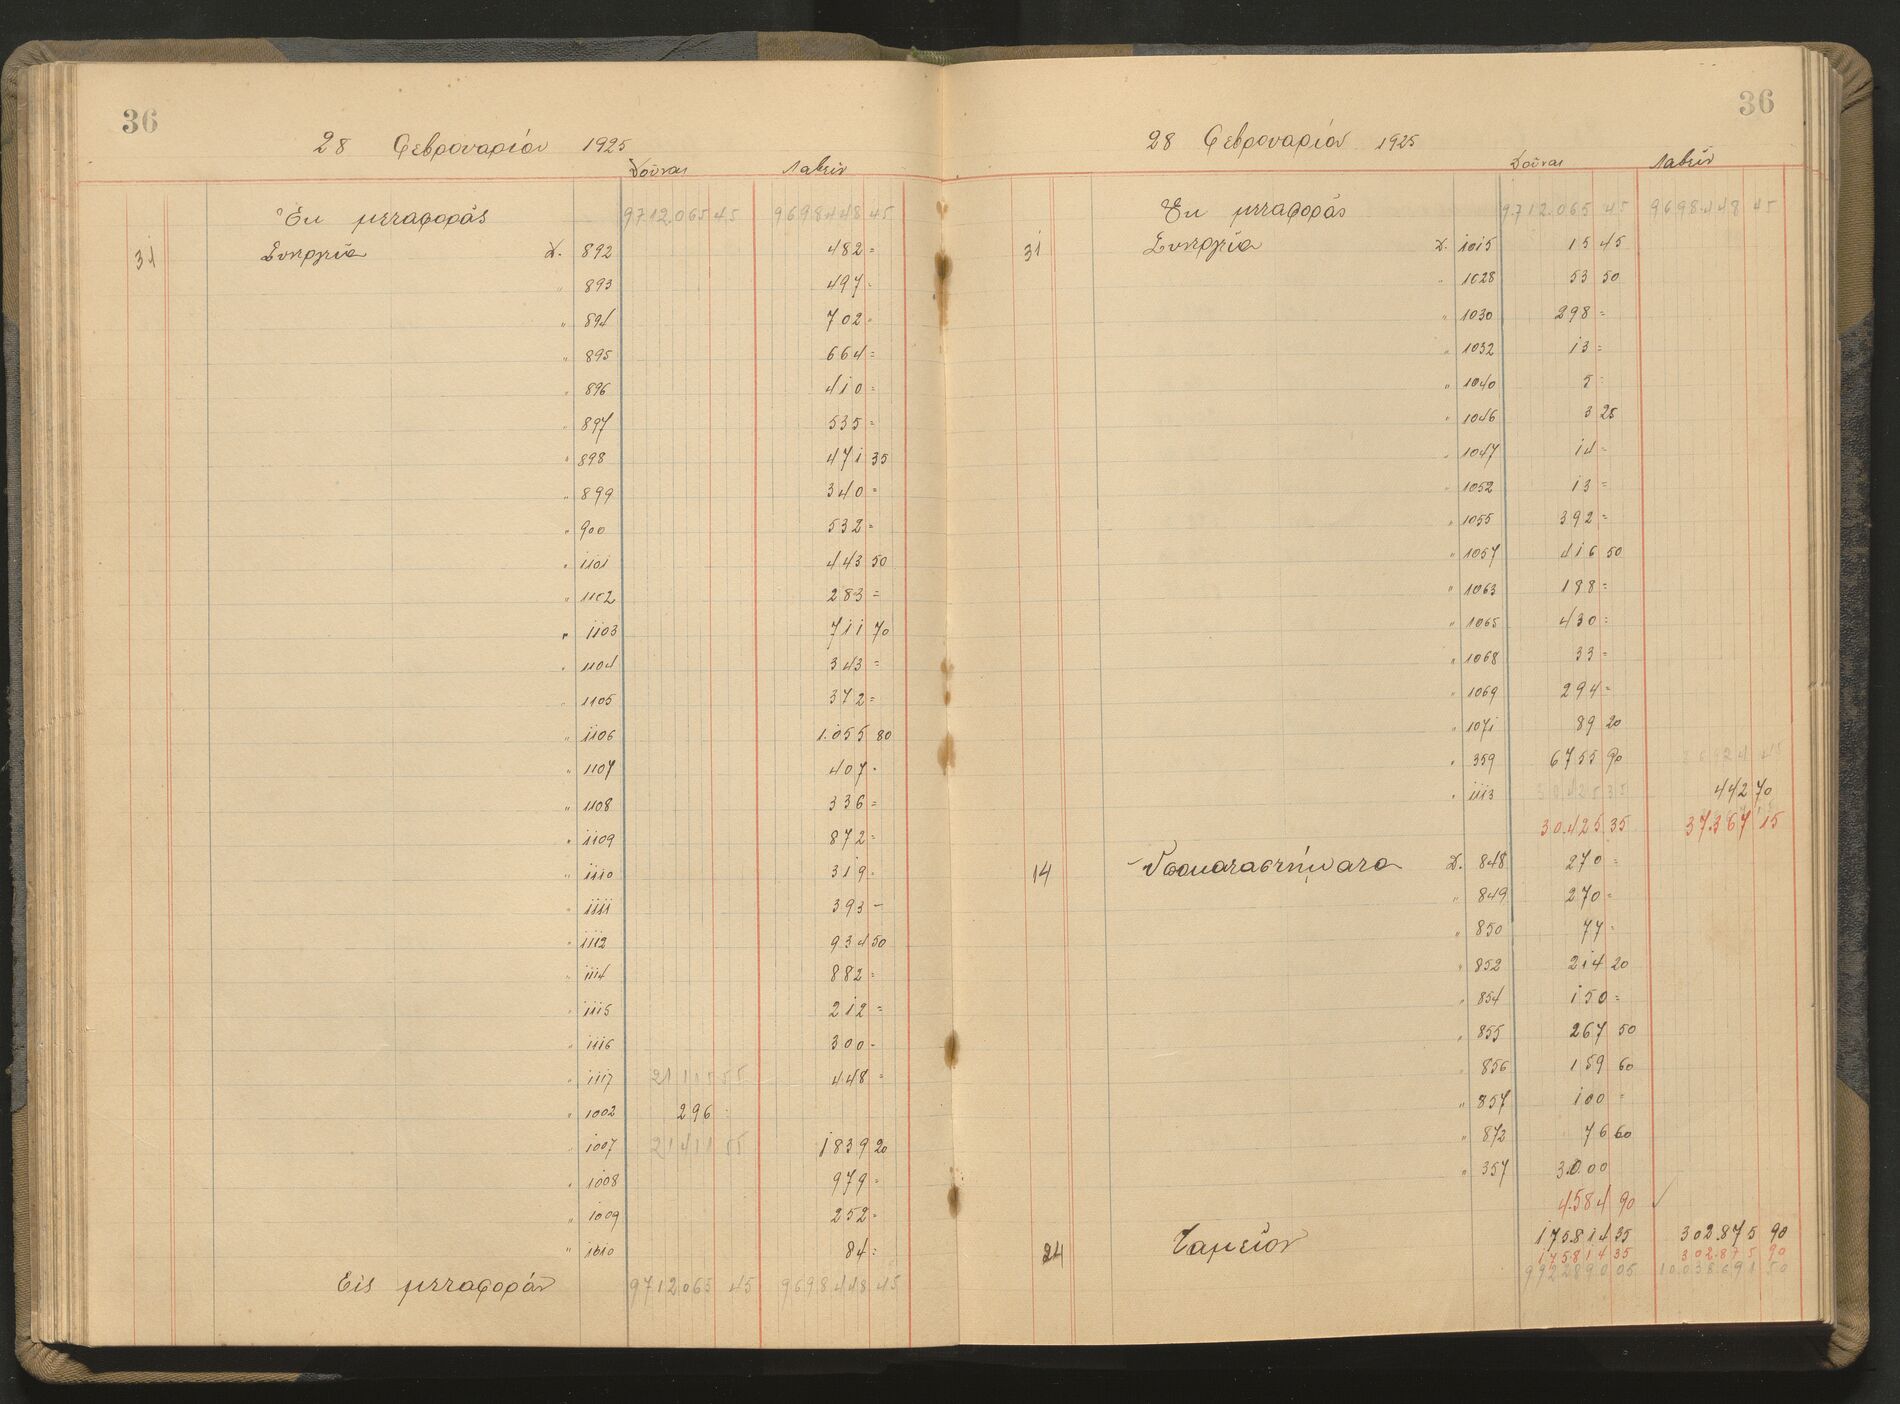 36
28 Φεβρουαρίου 1925
Δοῦναι Λαβεῖν
Ἐκ μεταφορᾶς 9712.065 45 9698448 45
31 Συνεργεῖα Δ. 892 482 =
" 893 497 =
" 894 702 =
" 895 664 =
" 896 410 =
" 897 535 =
" 898 471 35
" 899 340 =
" 900 532 =
" 1101 443 50
" 1102 283 =
" 1103 711 70
" 1104 343 =
" 1105 372 =
" 1106 1.055 80
" 1107 407 =
" 1108 336 =
" 1109 872 =
" 1110 319 =
" 1111 393 =
" 1112 934 50
" 1114 882 =
" 1115 212 =
" 1116 300 =
" 1117 21115 55 448 =
" 1002 296 =
" 1007 21411 55 1839 20
" 1008 979 =
" 1009 252 =
" 1010 84 =
Εἰς μεταφοράν 9712065 45 9698448 45
36
28 Φεβρουαρίου 1925
Δοῦναι Λαβεῖν
Ἐκ μεταφορᾶς 9712.065 45 9698448 45
31 Συνεργεῖα Δ. 1015 15 45
" 1028 53 50
" 1030 298 =
" 1032 13 =
" 1040 5 =
" 1046 3 25
" 1047 14 =
" 1052 13 =
" 1055 392 =
" 1057 416 50
" 1063 198 =
" 1065 430 =
" 1068 33 =
" 1069 294 =
" 1071 89 20
" 359 6755 90 36924 45
" 1113 30425 35 442 70
30.425 35 37.367 15
14 Ὑποκαταστήματα Δ. 848 270 =
" 849 270 =
" 850 77 =
" 852 214 20
" 854 150 =
" 855 267 50
" 856 159 60
" 857 100 =
" 872 76 60
" 357 3.000
4.584 90 ✓
24 Ταμεῖον 175814 35 302.875 90
175814 35 302.875 90
9922890 05 10.038691 50